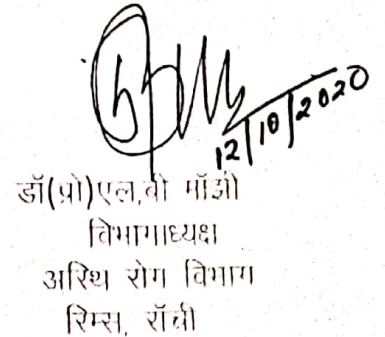 12/10/2020
डॉ(प्रो)एल,बी माँझी
विभागाध्यक्ष
अस्थि रोग विभाग
रिम्स, राँची